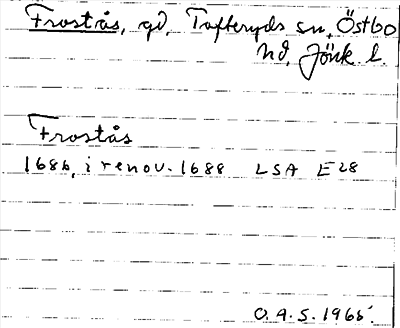 Frostås, gd, Tofteryds sn, Östbo
hd, Jönk. l.
Frostås
1686, i renov. 1688 LSA E28
O.A.S. 1966.